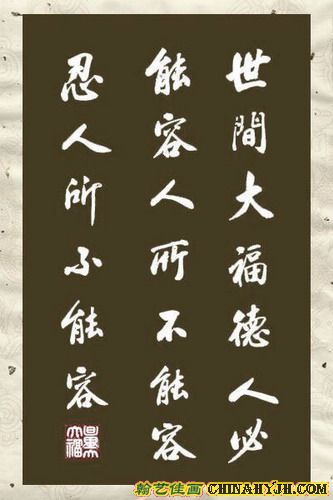 世間大福德人必
能容人所不能容
忍人所不能容
翰艺佳画 CHINAHYJH.COM